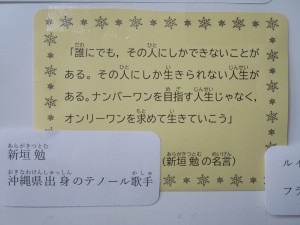 「誰にでも，その人にしかできないことが
ある。その人にしか生きられない人生が
ある。ナンバーワンを目指す人生じゃなく，
オンリーワンを求めて生きていこう」
(新垣勉の名言)
新垣 勉
沖縄県出身のテノール歌手
ルイ
フラ